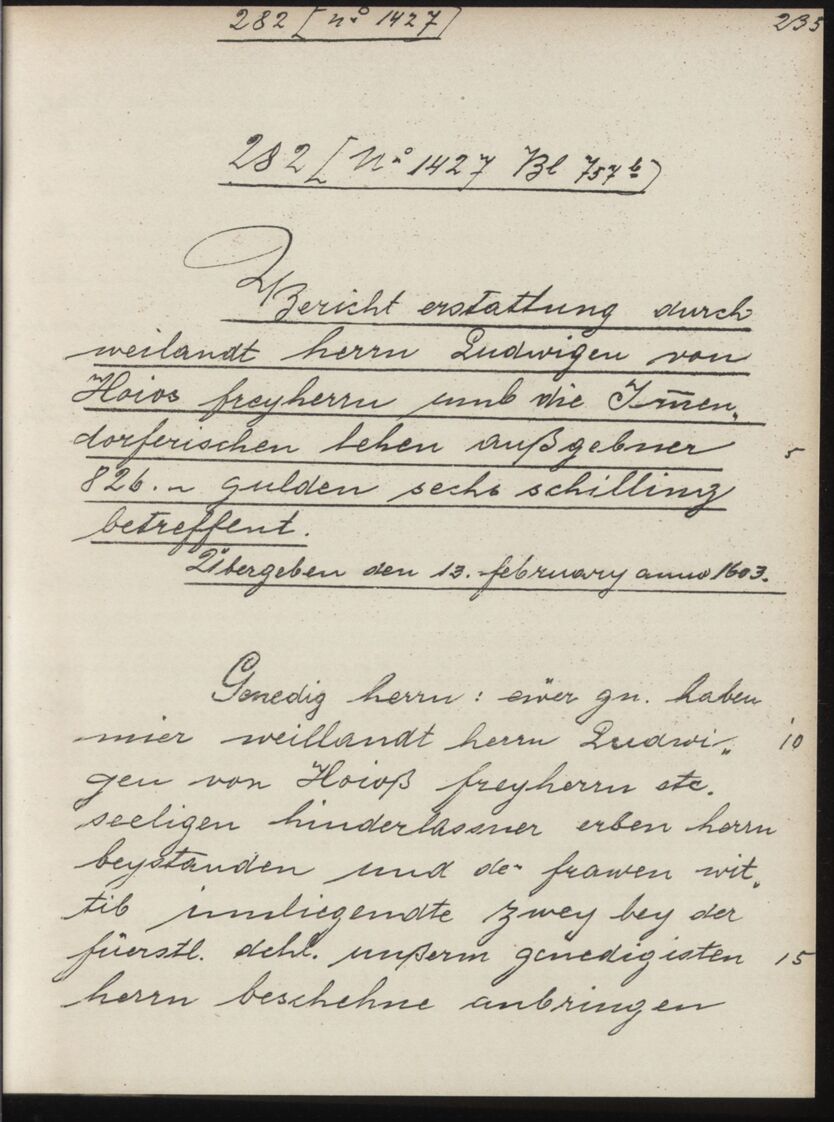 282 [Nº 1427] 235
282 [Nº 1427 Bl 757 b]
Bericht erstattung durch
weilandt herrn Ludwigen von
Hoios freyherrn umb die Irn̄en„
dorferischen lehen außgebner 5
826.– gulden sechs schilling
betreffent.
Übergeben den 13. february anno 1603.
Genedig herrn: eüer gn. haben
mier weillandt herrn Ludwi„ 10
gen von Hoioß freyherrn etc.
seeligen hinderlassner erben herrn
beystanden und der frawen wit„
tib innliegendte zwey bey der
füerstl. dchl. unßerm genedigisten 15
herrn beschehne anbringen